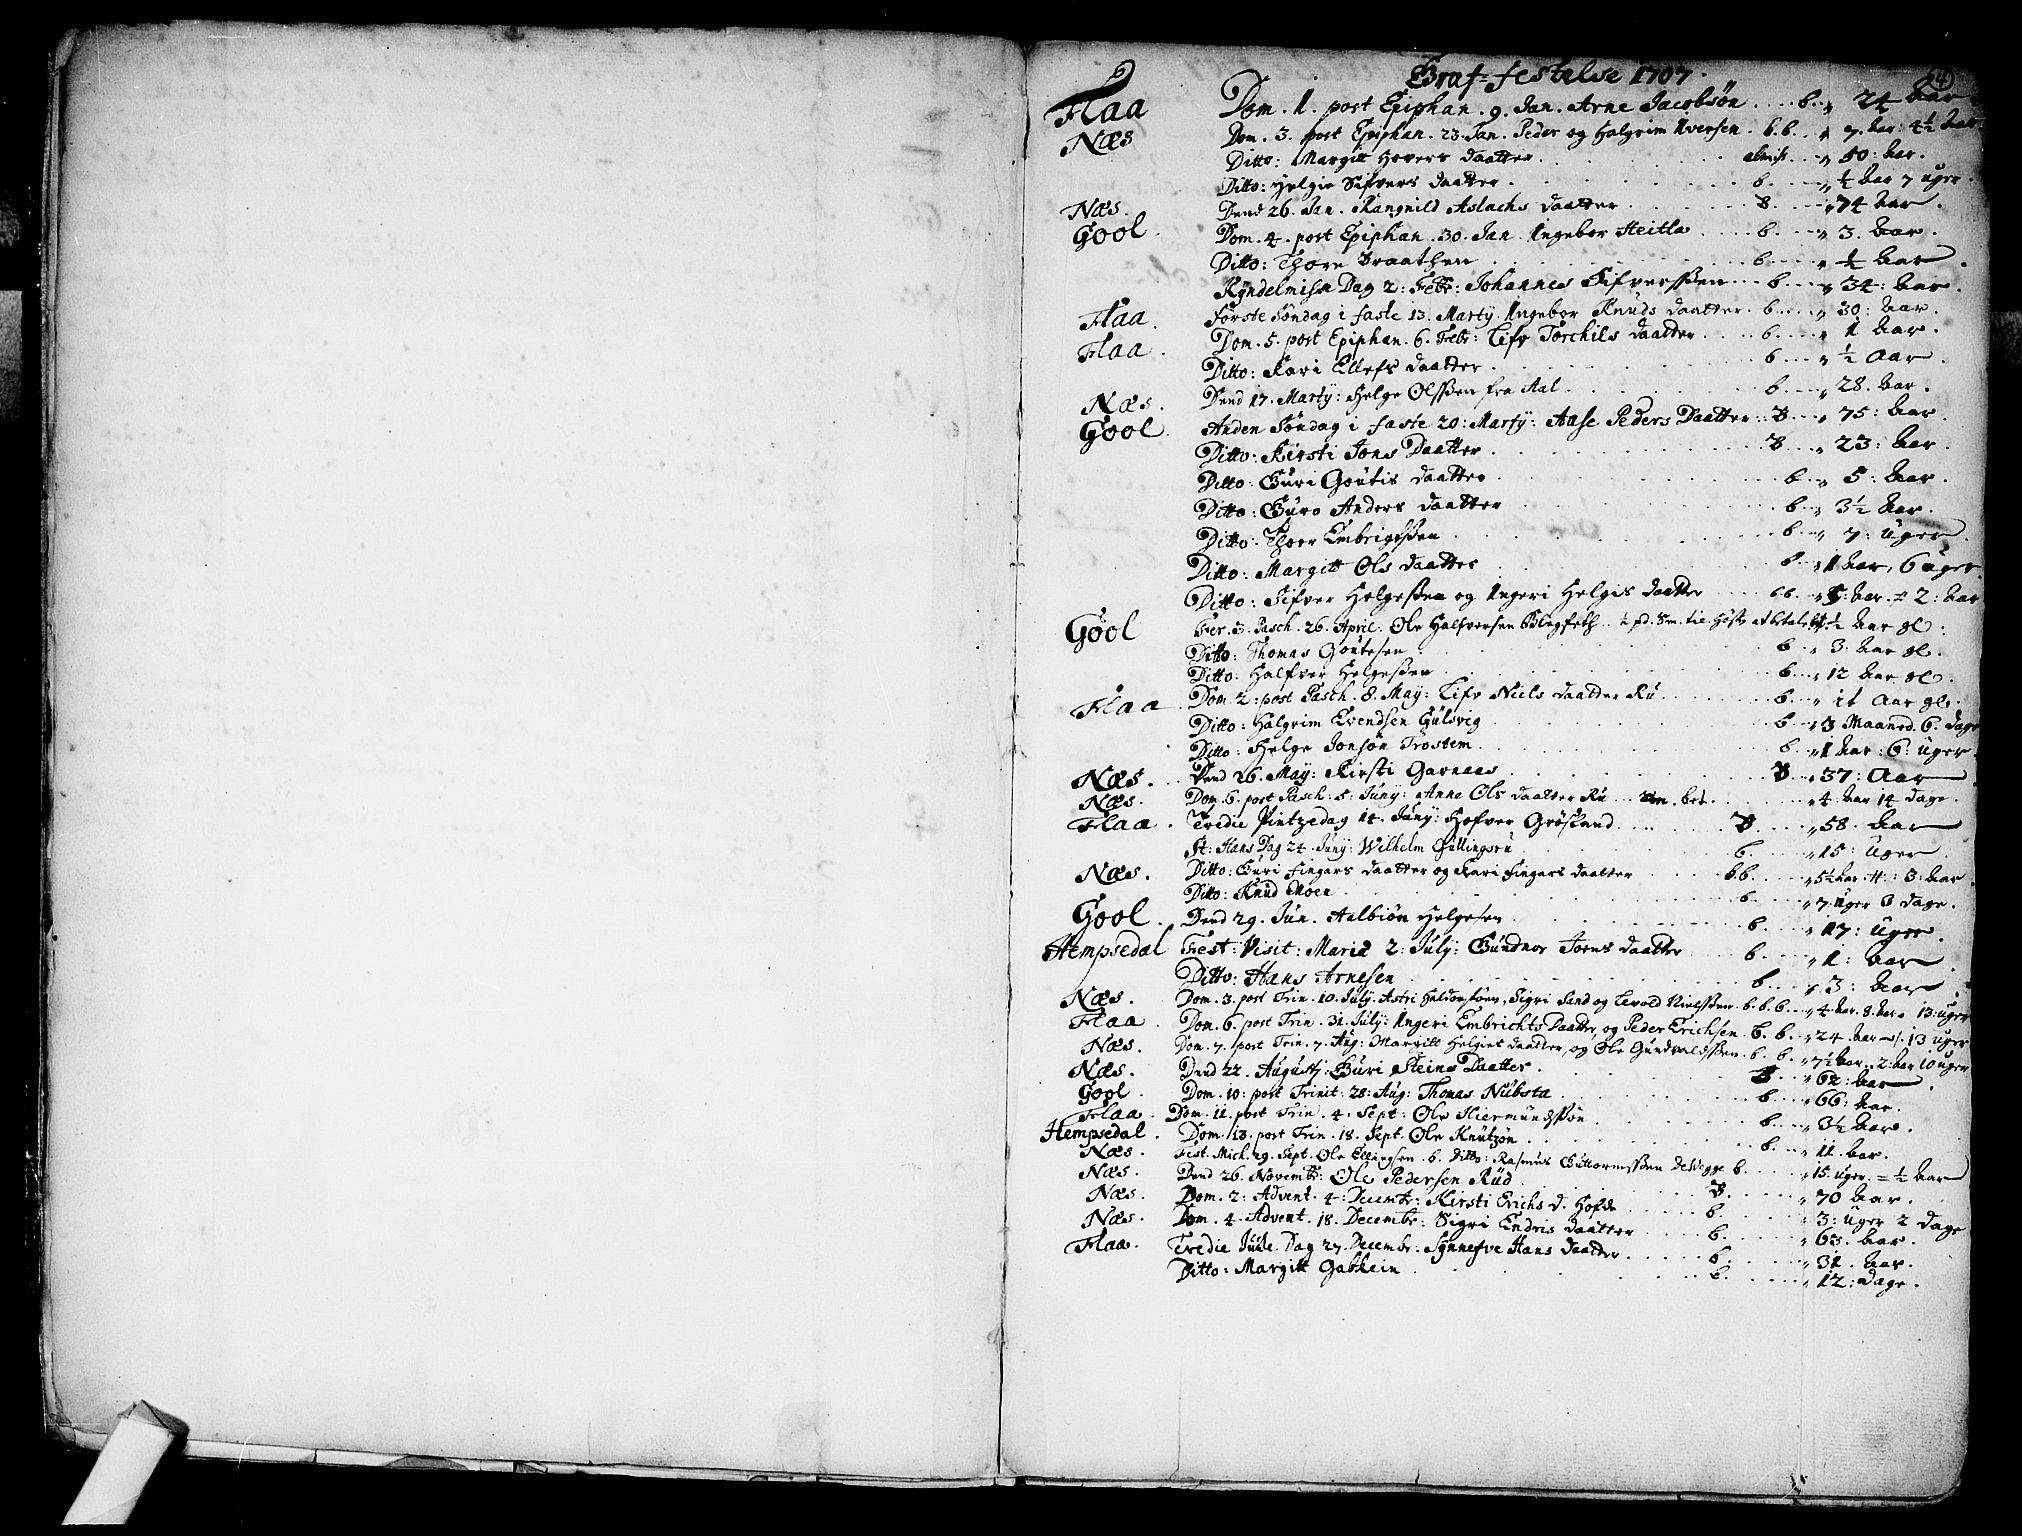 Graf-festelse 1707. 4
Flaa Dom. 1. post Epiphan. 9. Jan. Arne Jacobsøn .... b. „ 24 Aar
Næs Dom. 3. post Epiphan. 23. Jan. Peder og Halgrim Iversen . b.b. „ 7. Aar: 4½ Aar
Ditto: Margitt Hovers daatter . . . almiss. „ 50: Aar.
Ditto: Helgie Sifvers daatter . . . b. „ ½ Aar 7 uger.
Næs. Dend 26. Jan. Rangnild Aslachs daatter . . . B „ 74 Aar.
Gool. Dom. 4. post Epiphan. 30. Jan. Ingebor Heitla . . b. „ 3. Aar.
Ditto: Thore Braathen . . . b. „ ½ Aar.
Kyndelmisse Dag 2: Febr: Johannes Sifverssen . . b. „ 34: Aar.
Flaa. Første Søndag i faste 13. Martij. Ingebor Knuds daatter . b. „ 30: Aar.
Flaa. Dom. 5. post Epiphan. 6. Febr: Lifv Torchils daatter . . b. „ 1 Aar.
Ditto: Kari Ellefs daatter . . . b. „ ½ Aar.
Næs. Dend 17. Martij: Helge Olssen fra Aal . . . b. „ 28. Aar.
Gool. Anden Søndag i faste 20: Martij: Aase Peders Daatter . B . „ 75: Aar.
Ditto: Kirsti Jons Daatter . . . B . „ 23: Aar.
Ditto: Guri Goutis daatter . . . b. „ 5: Aar.
Ditto: Guro Anders daatter . . . b. „ 3½ Aar.
Ditto: Thoer Embrigssen . . . b. „ 7: uger.
Ditto: Margitt Ols daatter . . . b. „ 1 Aar, 6 uger.
Ditto: Sifver Helgessen og Ingeri Helgis daatter . . bb. „ 5: Aar. = 2: Aar
Gool Fer. 3. Pasch. 26. April: Ole Halfversen ½ pd. Sm. til Høste at betale ½ Aar gl:
Ditto: Thomas Goutesen . . . b. „ 3: Aar gl.
Ditto: Halfver Helgessen . . . b. „ 12 Aar gl.
Flaa Dom. 2: post Pasch. 8. May: Lifv Niels daatter Ru . . . b. „ 11 Aar gl.
Ditto: Halgrim Evendsen Gulsvig . . . b. „ 3 Maaned 6. dage
Ditto: Helge Jonsøn Trøstem . . . b. „ 1 Aar: 6: uger.
Næs. Dend 26. May: Kirsti Garnaas . . . B „ 37: Aar
Næs. Dom. 6. post Pasch: 5: Juny: Anne Ols daatter Ru . . bet. . . „ 4. Aar 14 dage.
Flaa. Tredie Pintzedag 14. Juny: Hofver Grøsland . . . B . „ 58. Aar
St: Hans Dag 24. Juny: Wilhelm Gullingsru b. „ 15: uger.
Næs. Ditto: Guri Fingars daatter og Kari Fingars daatter . . b.b. „ 5½ Aar. #: 3: Aar
Ditto: Knud Moen . . . b. „ 7. uger 6 dage.
Gool. Dend 29. Jun. Aslbiøn Helgesen . . . b. „ 17: uger.
Hempsedal Fest: Visit: Mariæ 2. July: Gundnor Joens daatter . . b. „ 1: Aar.
Ditto: Hans Arnesen . . . b. „ 3: Aar
Næs. Dom. 3. post Trin. 10. July. Astri, Sigri Sand og Levold Nielssen. b. b. b. „ 4 Aar. 8. Aar. 13: uger
Flaa. Dom. 6. post Trin. 31. July: Ingeri Embrichts Daatter, og Peder Erichsen . b. b. „ 24. Aar. 13 uger
Næs. Dom. 7. post Trin. 7. Aug: Margitt Helgies daatter, og Ole Gundvaldssen. b. b. „ 7½ Aar. 2: Aar 10 uger
Næs. Dend 22. Augusti: Guri Steins Daatter. . . B „ 62: Aar
Gool. Dom. 10: post Trinit. 28: Aug: Thomas Nubsta . . . b „ 66: Aar.
Flaa. Dom. 11. post Trin. 4. Sept: Ole Hiermundssøn . . b. „ 3½ Aar.
Hempsedal. Dom. 13. post Trin. 18. Sept. Ole Knutzøn . . . b. „ 11. Aar.
Næs. Fest. Mich. 29. Sept. Ole Ellingsen . b. Ditto: Rasmus Guttormssen Devegge b. „ 15. uger. = ½ Aar
Næs. Dend 26. Novembr: Ole Pedersen Rud . . . B. „ 70 Aar.
Næs. Dom. 2: Advent. 4: Decembr: Kirsti Erichs d. Hofde . . b. „ 3: uger 2 dage
Næs. Dom. 4. Advent. 18. Decembr: Sigri Endris daatter . . b. „ 63. Aar.
Flaa. Tredie Jule Dag 27. Decembr: Synnefve Hans daatter . . b. „ 31. Aar.
Ditto: Margitt . . . b. „ 12: dage.